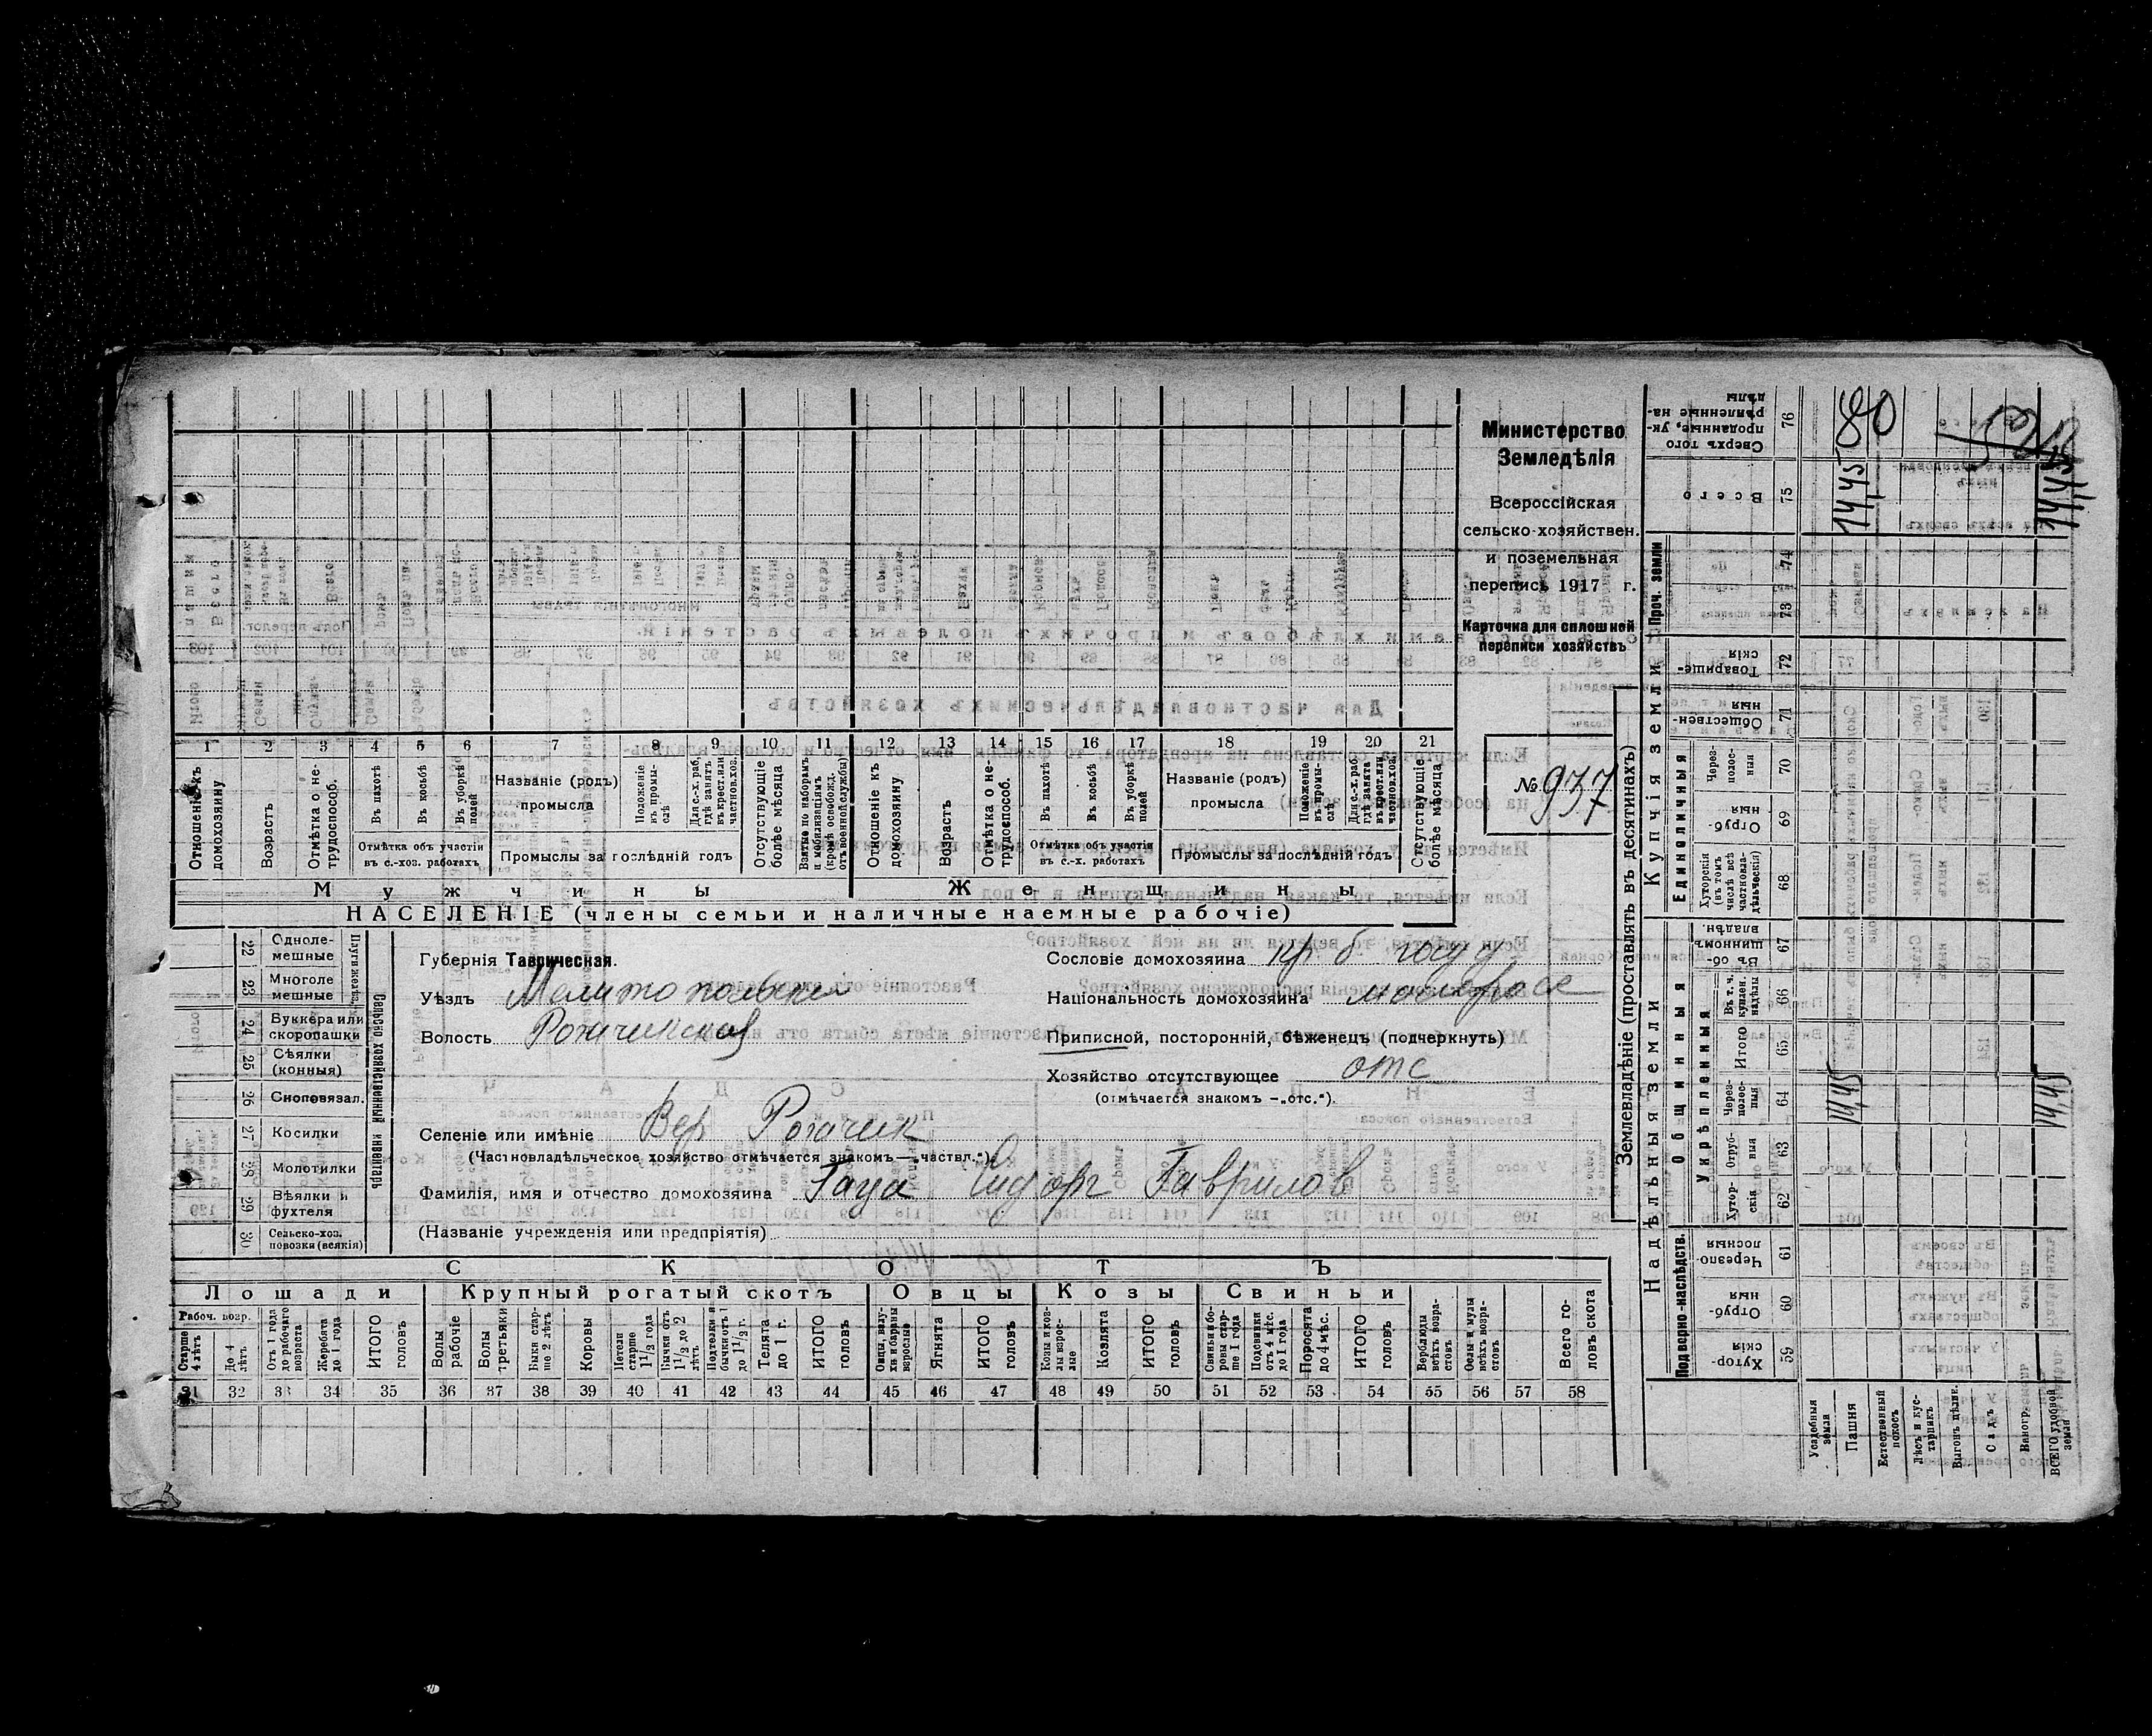 Министерство
Земледѣлія
Всероссійская
сельско-хозяйствен.
и поземельная
перепись 1917 г.
Карточка для сплошной
переписи хозяйствъ
№ 937
1 2 3 4 5 6 7 8 9 10 11 12 13 14 15 16 17 18 19 20 21
Отношеніе къ домохозяину
Возрастъ
Отмѣтка о не-трудоспособ.
Въ пахотѣ
Въ косьбѣ
Въ уборкѣ полей
Отмѣтка объ участіи въ с.-хоз. работахъ
Названіе (родъ) промысла
Положеніе въ промы-слѣ
Для с.-х. раб., гдѣ занятъ въ крест. или частнов. хоз.
Промыслы за послѣдній годъ
Отсутствующіе болѣе мѣсяца
Взятые по наборамъ и мобилизаціямъ (кромѣ освобожд. отъ военной службы)
Отношеніе къ домохозяину
Возрастъ
Отмѣтка о не-трудоспособ.
Въ пахотѣ
Въ косьбѣ
Въ уборкѣ полей
Отмѣтка объ участіи въ с.-х. работахъ
Названіе (родъ) промысла
Положеніе въ промы-слѣ
Для с.-х. раб. гдѣ занята въ крест. или частнов. хоз.
Промыслы за послѣдній годъ
Отсутствующіе болѣе мѣсяца
Мужчины Женщины
НАСЕЛЕНІЕ (члены семьи и наличные наемные рабочіе)
Сельско-хозяйственный инвентарь
22 Одноле-мешные
23 Многоле мешные
24 Буккера или скоропашки
25 Сѣялки (конныя)
26 Сноповязал.
27 Косилки
28 Молотилки
29 Вѣялки и фухтеля
30 Сельско-хоз. повозки (всякія)
Губернія Таврическая.
Уѣздъ Мелитопольскій
Волость Рогачикская
Селеніе или имѣніе Вер Рогачик
(Частновладѣльческое хозяйство отмѣчается знакомъ — „частвл.“).
Фамилія, имя и отчество домохозяина Гауа Сидоръ Гаврилов
(Названіе учрежденія или предпріятія)
Сословіе домохозяина кр б госуд
Національность домохозяина малоросс
Приписной, посторонній, бѣженецъ (подчеркнуть)
Хозяйство отсутствующее отс
(отмѣчается знакомъ — „отс.“).
СКОТЪ
Лошади Крупный рогатый скотъ Овцы Козы Свиньи
Рабоч. возр.
Старше 4 лѣтъ
До 4 лѣтъ
Отъ 1 года до рабочаго возраста
Жеребята до 1 года
ИТОГО головъ
Волы рабочіе
Волы третьяки
Быки стар-ше 2 лѣтъ
Коровы
Нетели старше 1 1/2 года
Бычки отъ 1 1/2 до 2 лѣтъ
Подтелки и бычки отъ 1 до 1 1/2 г.
Телята до 1 г.
ИТОГО головъ
Овцы, валу-хи и бараны взрослые
Ягнята
ИТОГО головъ
Козы и коз-лы взрос-лые
Козлята
ИТОГО головъ
Свиньи и бо-ровы стар-ше 1 года
Подсвинки отъ 4 мѣс. до 1 года
Поросята до 4 мѣс.
ИТОГО головъ
Верблюды всѣхъ возра-стовъ
Ослы и мулы всѣхъ возра-стовъ
Всего го-ловъ скота
31 32 33 34 35 36 37 38 39 40 41 42 43 44 45 46 47 48 49 50 51 52 53 54 55 56 57 58
Землевладѣніе (проставлять въ десятинахъ)
Надѣльныя земли Купчія земли Проч. земли
Подворно-наслѣдств. Общинныя Единоличныя
Укрѣпленныя
Хутор-скія 59
Отруб-ныя 60
Черезпо-лосныя 61
Хутор-скія 62
Отруб-ныя 63
Через-полос-ныя 64
Итого 65
Въ т. ч. куплен. надѣлы 66
Въ об-щинномъ владѣн. 67
Хуторскія (въ томъ числѣ всѣ частновла-дѣльческія) 68
Отруб-ныя 69
Через-полос-ныя 70
Обществен-ныя 71
Товарище-скія 72
73 74
Всего 75
Сверхъ того проданные, ук-рѣпленные на-дѣлы 76
Усадебныя земли
Пашня 14,45 14,45
Естественный покосъ
Лѣсъ и кус-тарникъ
Выгонъ, цѣлин.
Садъ
Виногр.
ВСЕГО удобной земли 14,45 14,45
80